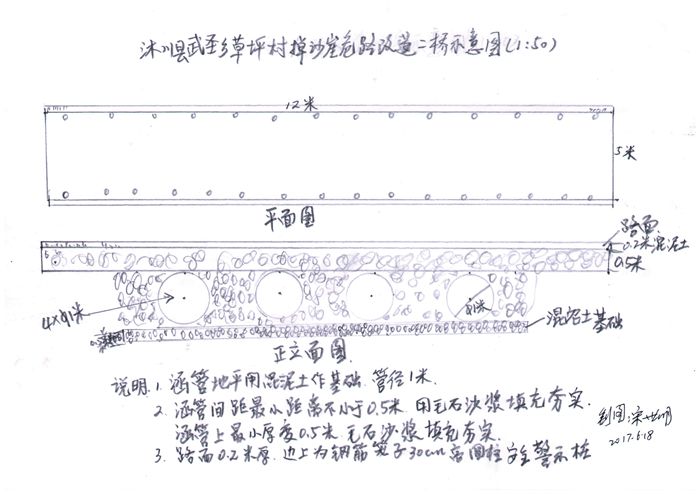 沐川县武圣乡草坪村掉沙崖危路改造二桥示意图(1:50)
12米
5米
平面图
路面
0.2米混泥土
0.5米
4×φ1米
φ1米
混泥土基础
正立面图
说明.1.涵管地平用混泥土作基础.管径1米.
2.涵管间距最小距离不小于0.5米.用毛石沙浆填充夯实.
涵管上最小厚度0.5米.毛石沙浆填充夯实.
3.路面0.2米厚.边上为钢筋笼子30cm高圆柱安全警示桩
制图:宋世明
2017.6.18